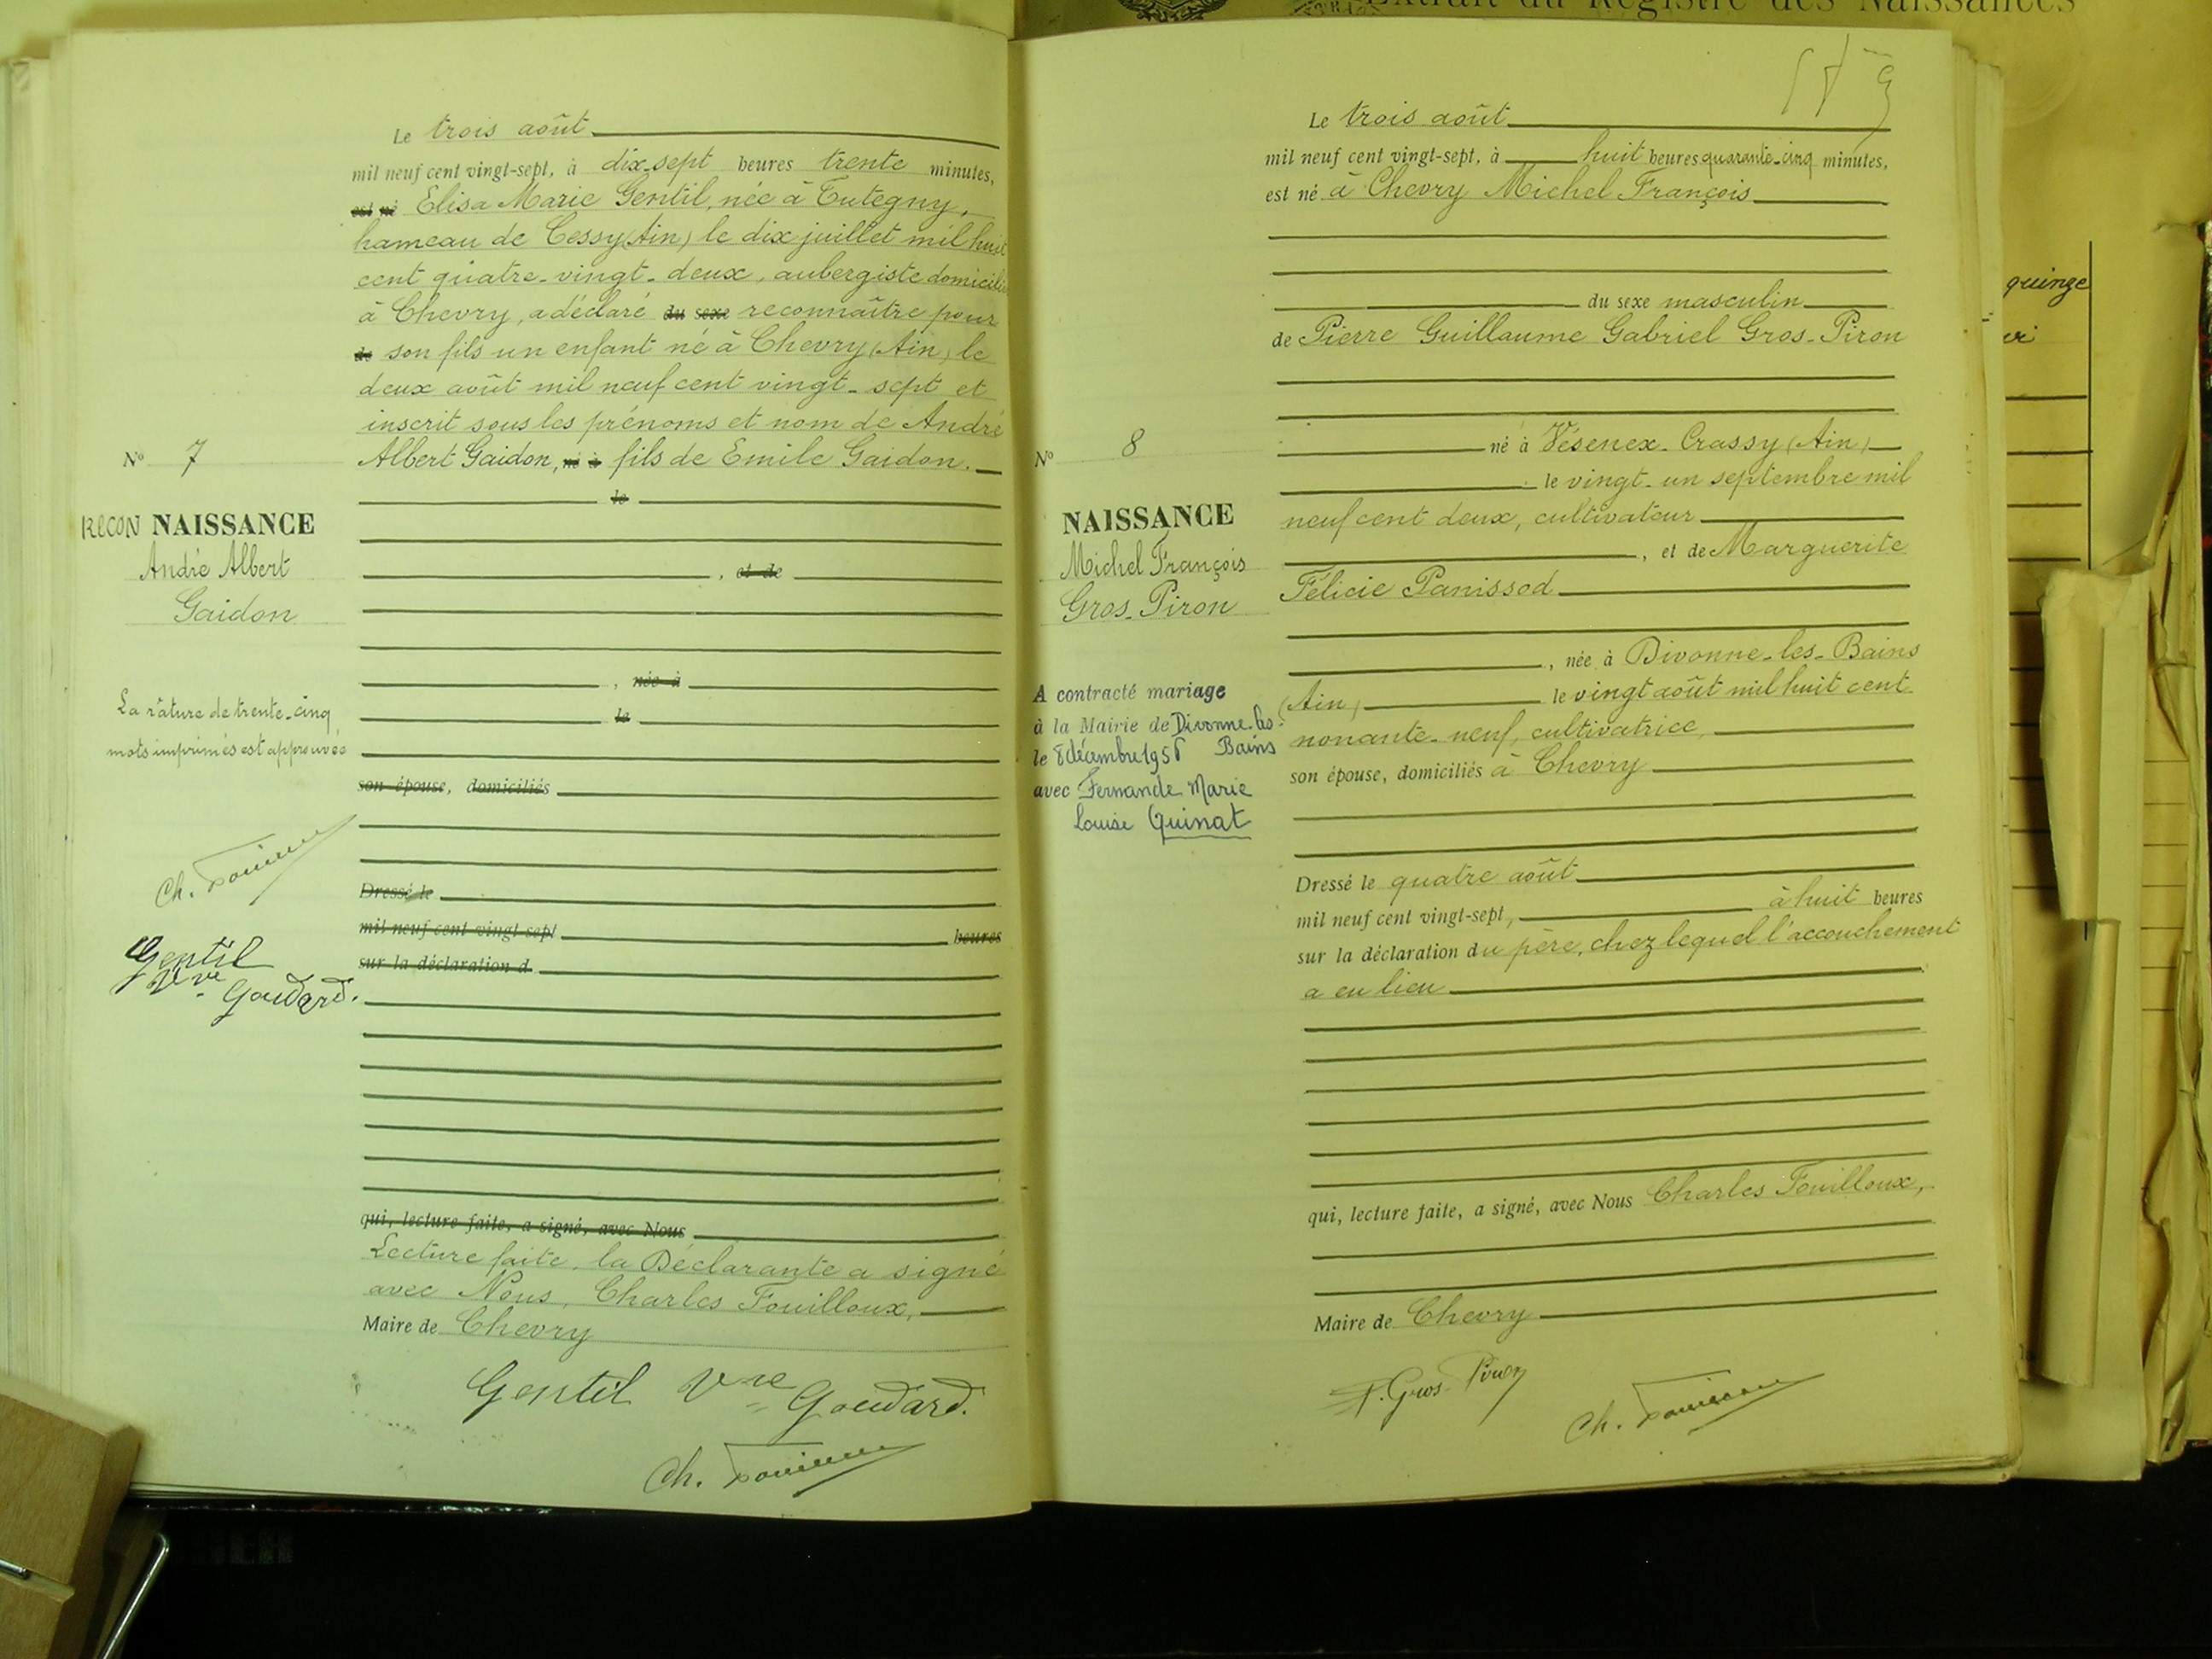 Extrait du Registre des Naissances
Le trois août
mil neuf cent vingt-sept, à dix-sept heures trente minutes,
est né Elisa Marie Gentil, née à Tutegny,
hameau de Cessy (Ain) le dix juillet mil huit
cent quatre-vingt-deux, aubergiste domicilié
à Chevry, a déclaré du sexe reconnaître pour
de son fils un enfant né à Chevry (Ain) le
deux août mil neuf cent vingt-sept et
inscrit sous les prénoms et nom de André
Albert Gaidon, né à fils de Emile Gaidon.
le
, et de
, née à
le
son épouse, domiciliés
Dressé le
mil neuf cent vingt-sept heures
sur la déclaration d
qui, lecture faite, a signé, avec Nous
Lecture faite, la Déclarante a signé
avec Nous, Charles Fouilloux,
Maire de Chevry
Gentil Vve Goudard.
Ch. Fouilloux
N° 7
RECON NAISSANCE
André Albert
Gaidon
La râture de trente-cinq
mots imprimés est approuvée
Ch. Fouilloux
Gentil
Vve Goudard.
Le trois août
mil neuf cent vingt-sept, à huit heures quarante-cinq minutes,
est né à Chevry Michel François
du sexe masculin
de Pierre Guillaume Gabriel Gros-Piron
né à Vésenex-Crassy (Ain)
le vingt-un septembre mil
neuf cent deux, cultivateur
, et de Marguerite
Félicie Panissod
, née à Divonne-les-Bains
(Ain) le vingt août mil huit cent
nonante-neuf, cultivatrice,
son épouse, domiciliés à Chevry
Dressé le quatre août
mil neuf cent vingt-sept, à huit heures
sur la déclaration du père, chez lequel l'accouchement
a eu lieu
qui, lecture faite, a signé, avec Nous Charles Fouilloux,
Maire de Chevry
P. Gros-Piron
Ch. Fouilloux
N° 8
NAISSANCE
Michel François
Gros-Piron
A contracté mariage
à la Mairie de Divonne-les-
le 8 décembre Bains
avec Fernande Marie
Louise Quinat
quinze